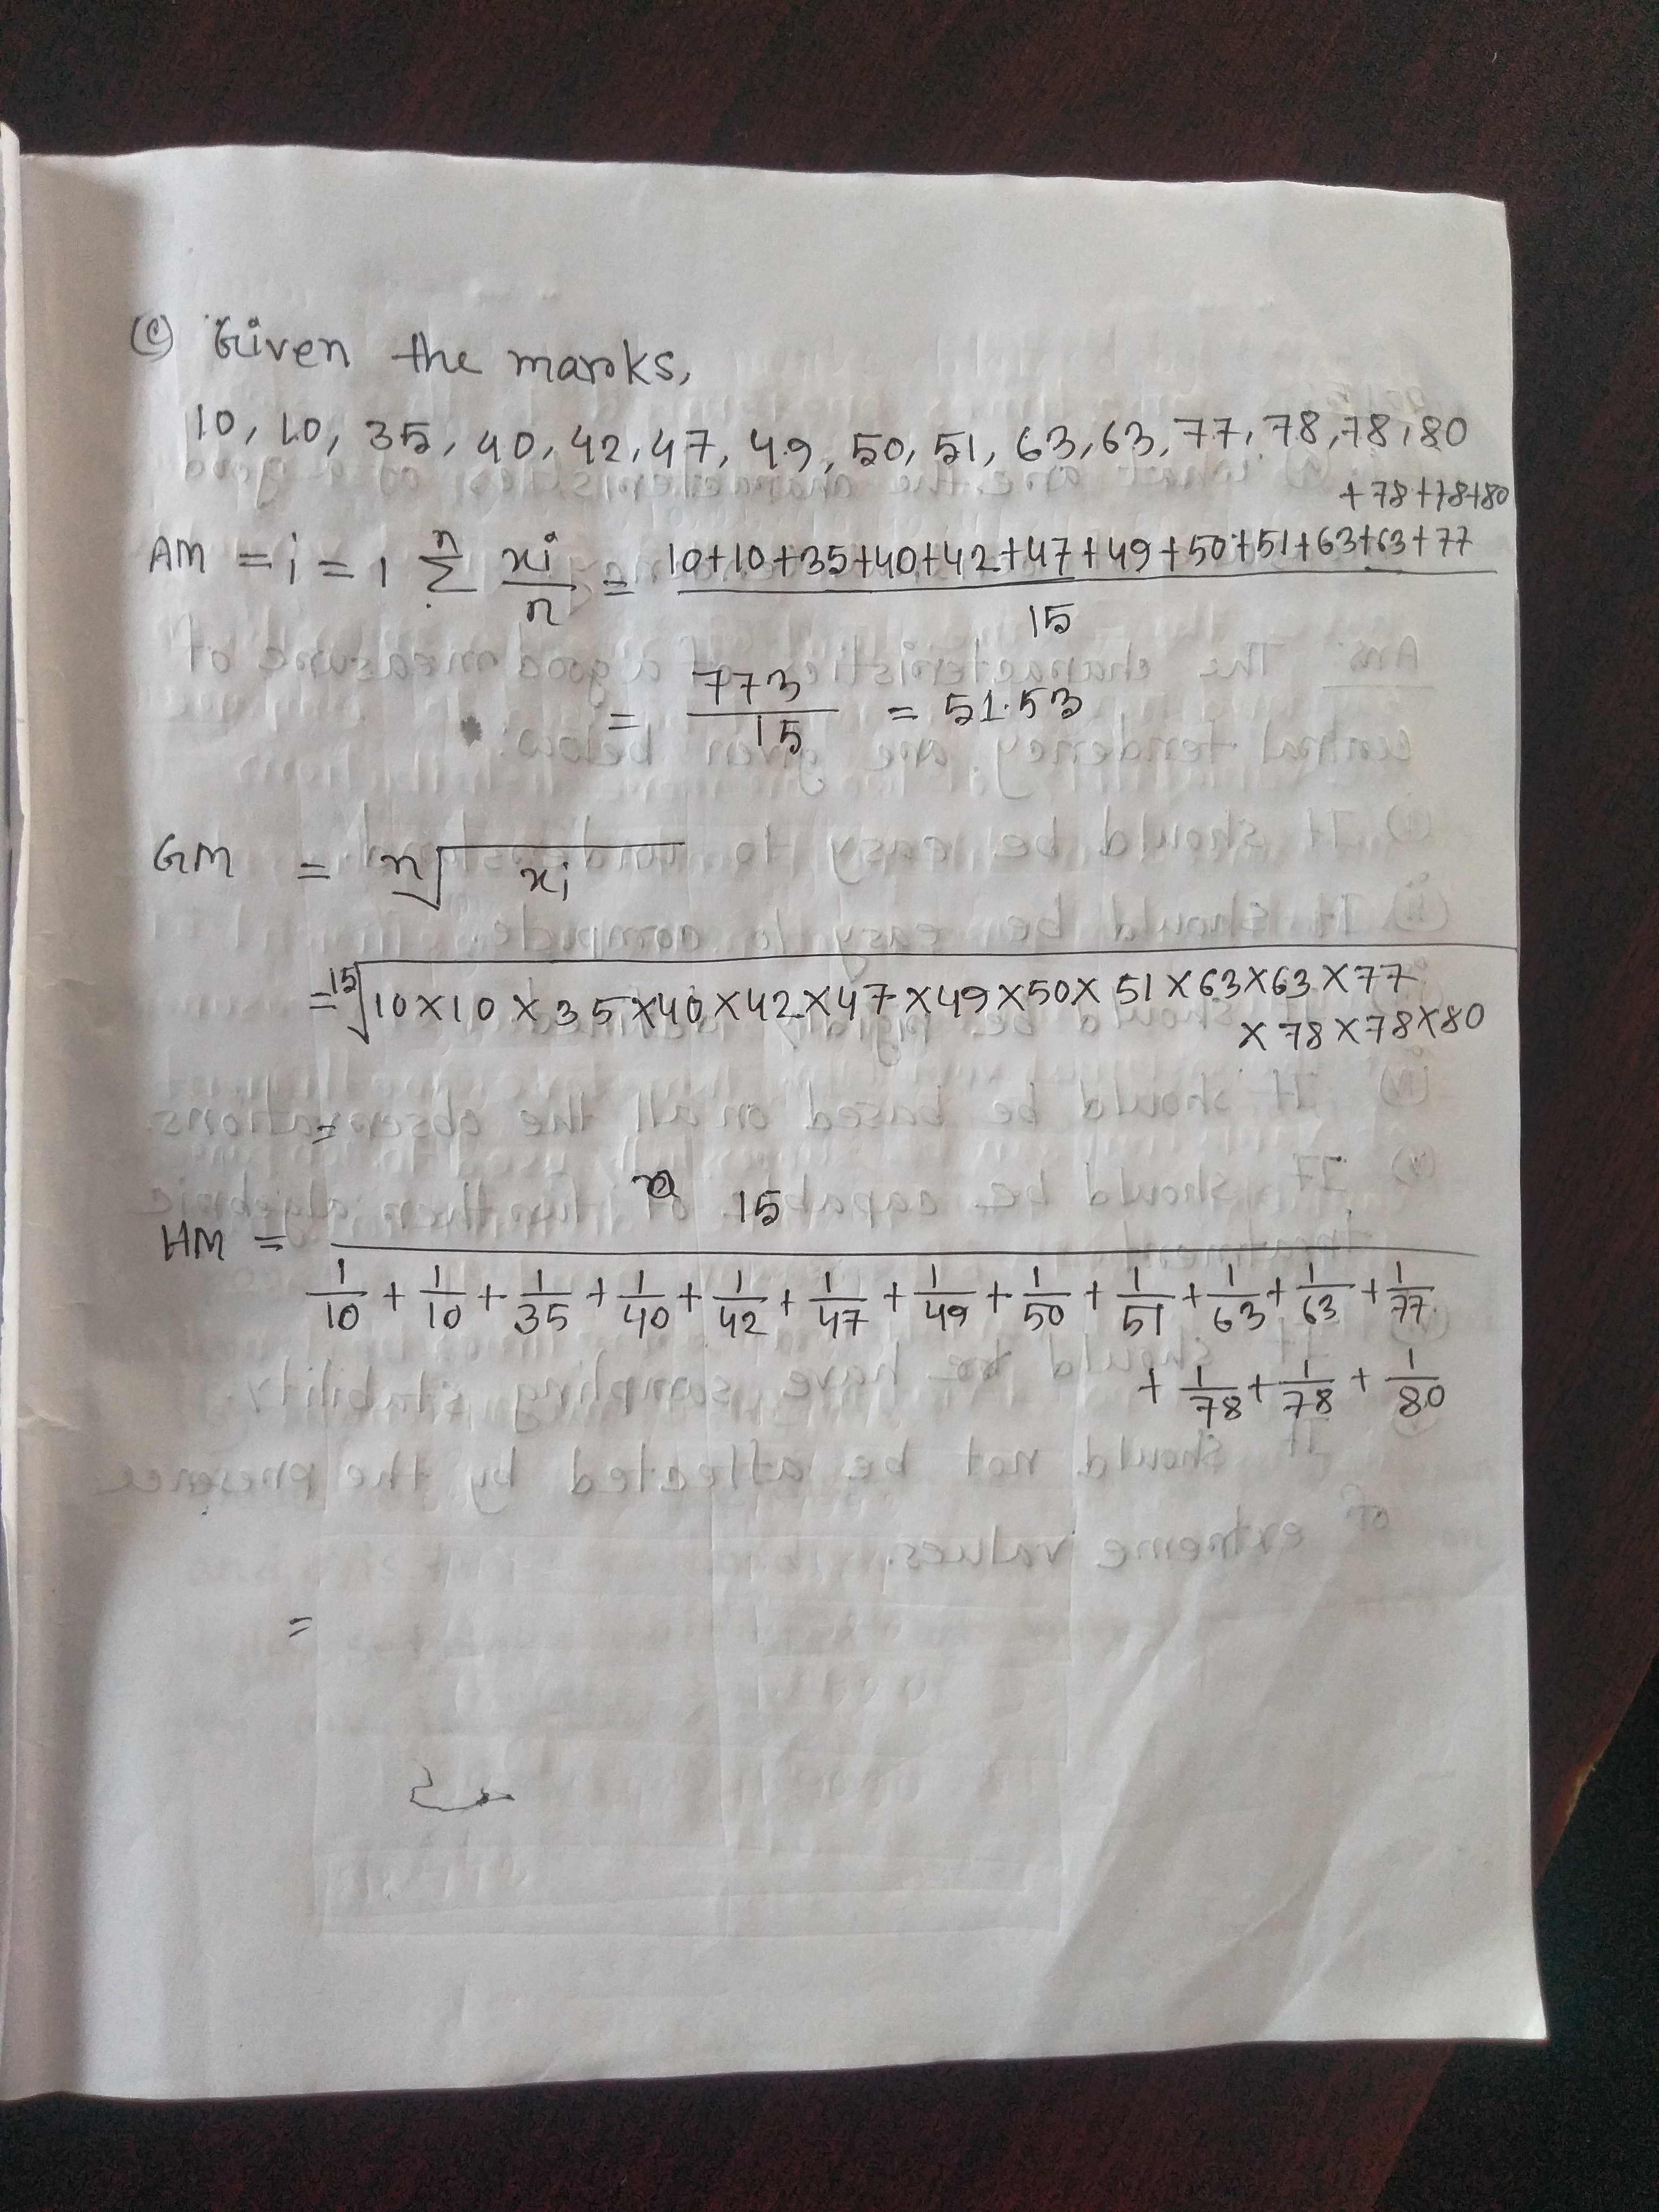 (c) Given the marks,
10, 10, 35, 40, 42, 47, 49, 50, 51, 63, 63, 77, 78, 78, 80
+78+78+80
AM = i = 1 n Σ xi/n = 10+10+35+40+42+47+49+50+51+63+63+77 / 15
= 773/15 = 51.53
GM = n√xi
= 15√10×10×35×40×42×47×49×50×51×63×63×77
×78×78×80
=
15
HM =
1/10 + 1/10 + 1/35 + 1/40 + 1/42 + 1/47 + 1/49 + 1/50 + 1/51 + 1/63 + 1/63 + 1/77
+ 1/78 + 1/78 + 1/80
=